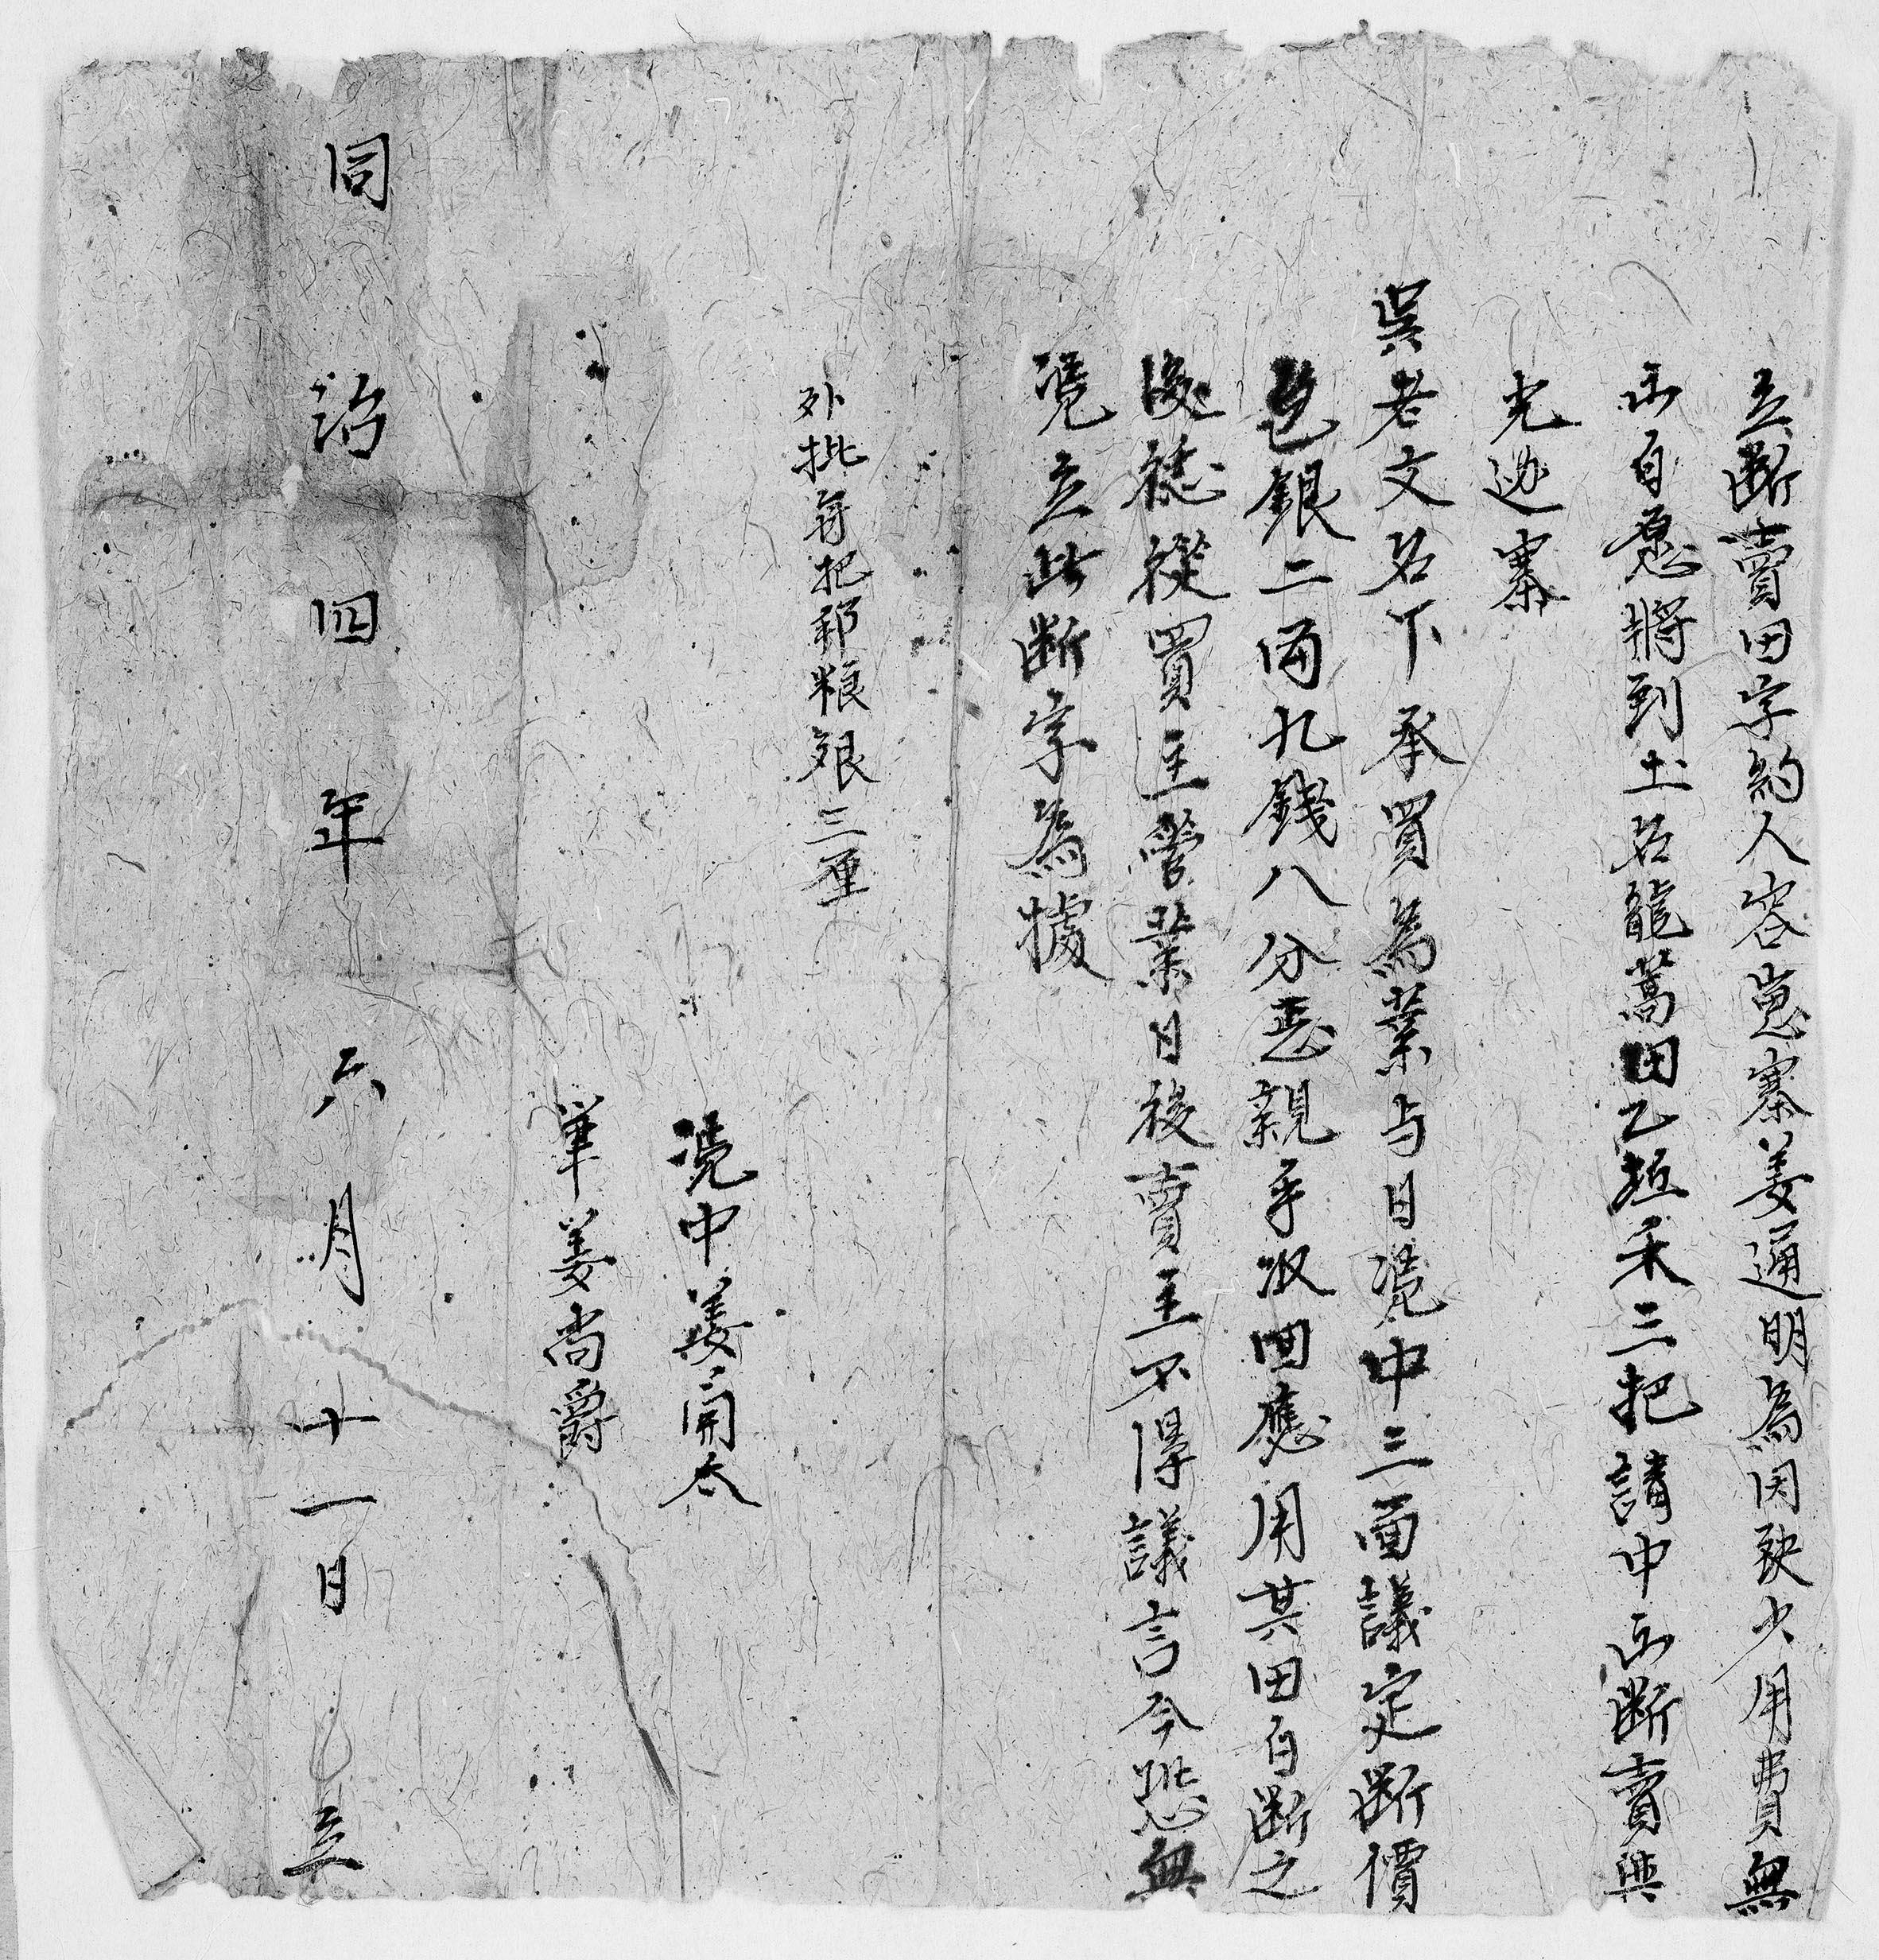 立斷賣田字約人容嵬寨姜通明為因缺少用費無
出自愿將到土名龍蒿田乙坵禾三把請中出斷賣與
光迯寨
吳老文名下承買為業与日凴中三面議定斷價
色銀二両九錢八分悉親手收回應用其田自斷之
後恁從買主管業日後賣主不得議言今恐無
凴立此斷字為據
外批每把邦粮銀三厘
凴中姜開太
筆姜尚爵
同治四年六月十一日立